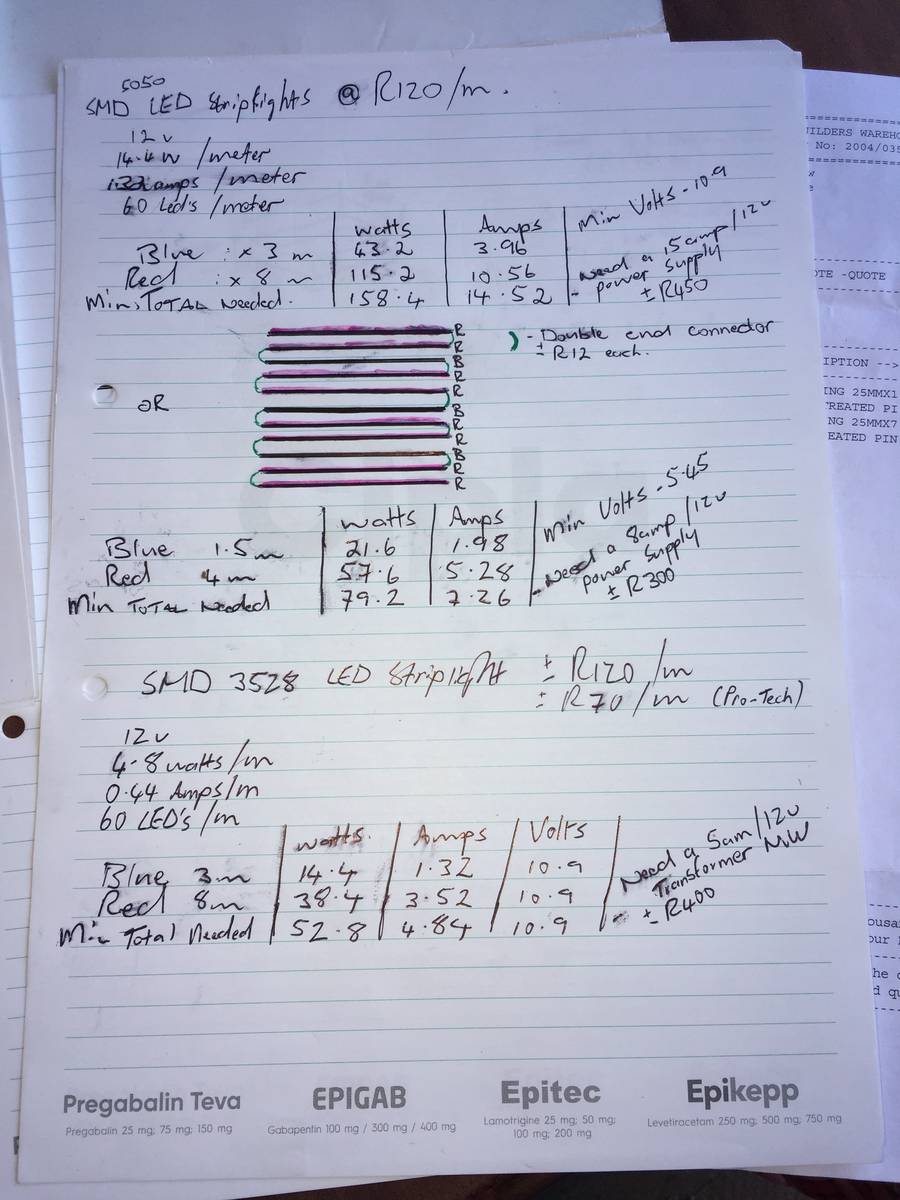 5050
SMD LED Striplights @ R120/m.
12v
14.4w /meter
1.32amps /meter
60 Led's /meter
watts Amps Min Volts - 10.9
Blue : x 3 m 43.2 3.96
Red : x 8 m 115.2 10.56
Min, TOTAL Needed. 158.4 14.52
- Need a 15amp/12v
power supply
± R450
R
R
B
R
R
B
R
R
B
R
R
) - Double end connector
± R12 each.
OR
watts Amps Min Volts - 5.45
Blue 1.5m 21.6 1.98
Red 4m 57.6 5.28
Min TOTAL Needed 79.2 7.26
- Need a 8amp/12v
power supply
± R300
SMD 3528 LED Striplight ± R120/m
± R70/m (Pro-Tech)
12v
4.8watts/m
0.44 Amps/m
60 LED's/m
watts. Amps Volts
Blue 3m 14.4 1.32 10.9
Red 8m 38.4 3.52 10.9
Min Total Needed 52.8 4.84 10.9
Need a 5am/12v
Transformer MW
- ± R400
Pregabalin Teva
Pregabalin 25 mg; 75 mg; 150 mg
EPIGAB
Gabapentin 100 mg / 300 mg / 400 mg
Epitec
Lamotrigine 25 mg; 50 mg;
100 mg; 200 mg
Epikepp
Levetiracetam 250 mg; 500 mg; 750 mg
UILDERS WAREHO
No: 2004/035
OTE -QUOTE
IPTION -->
ING 25MMX1
TREATED PI
NG 25MMX7
EATED PIN
ousa
our
he
d qu